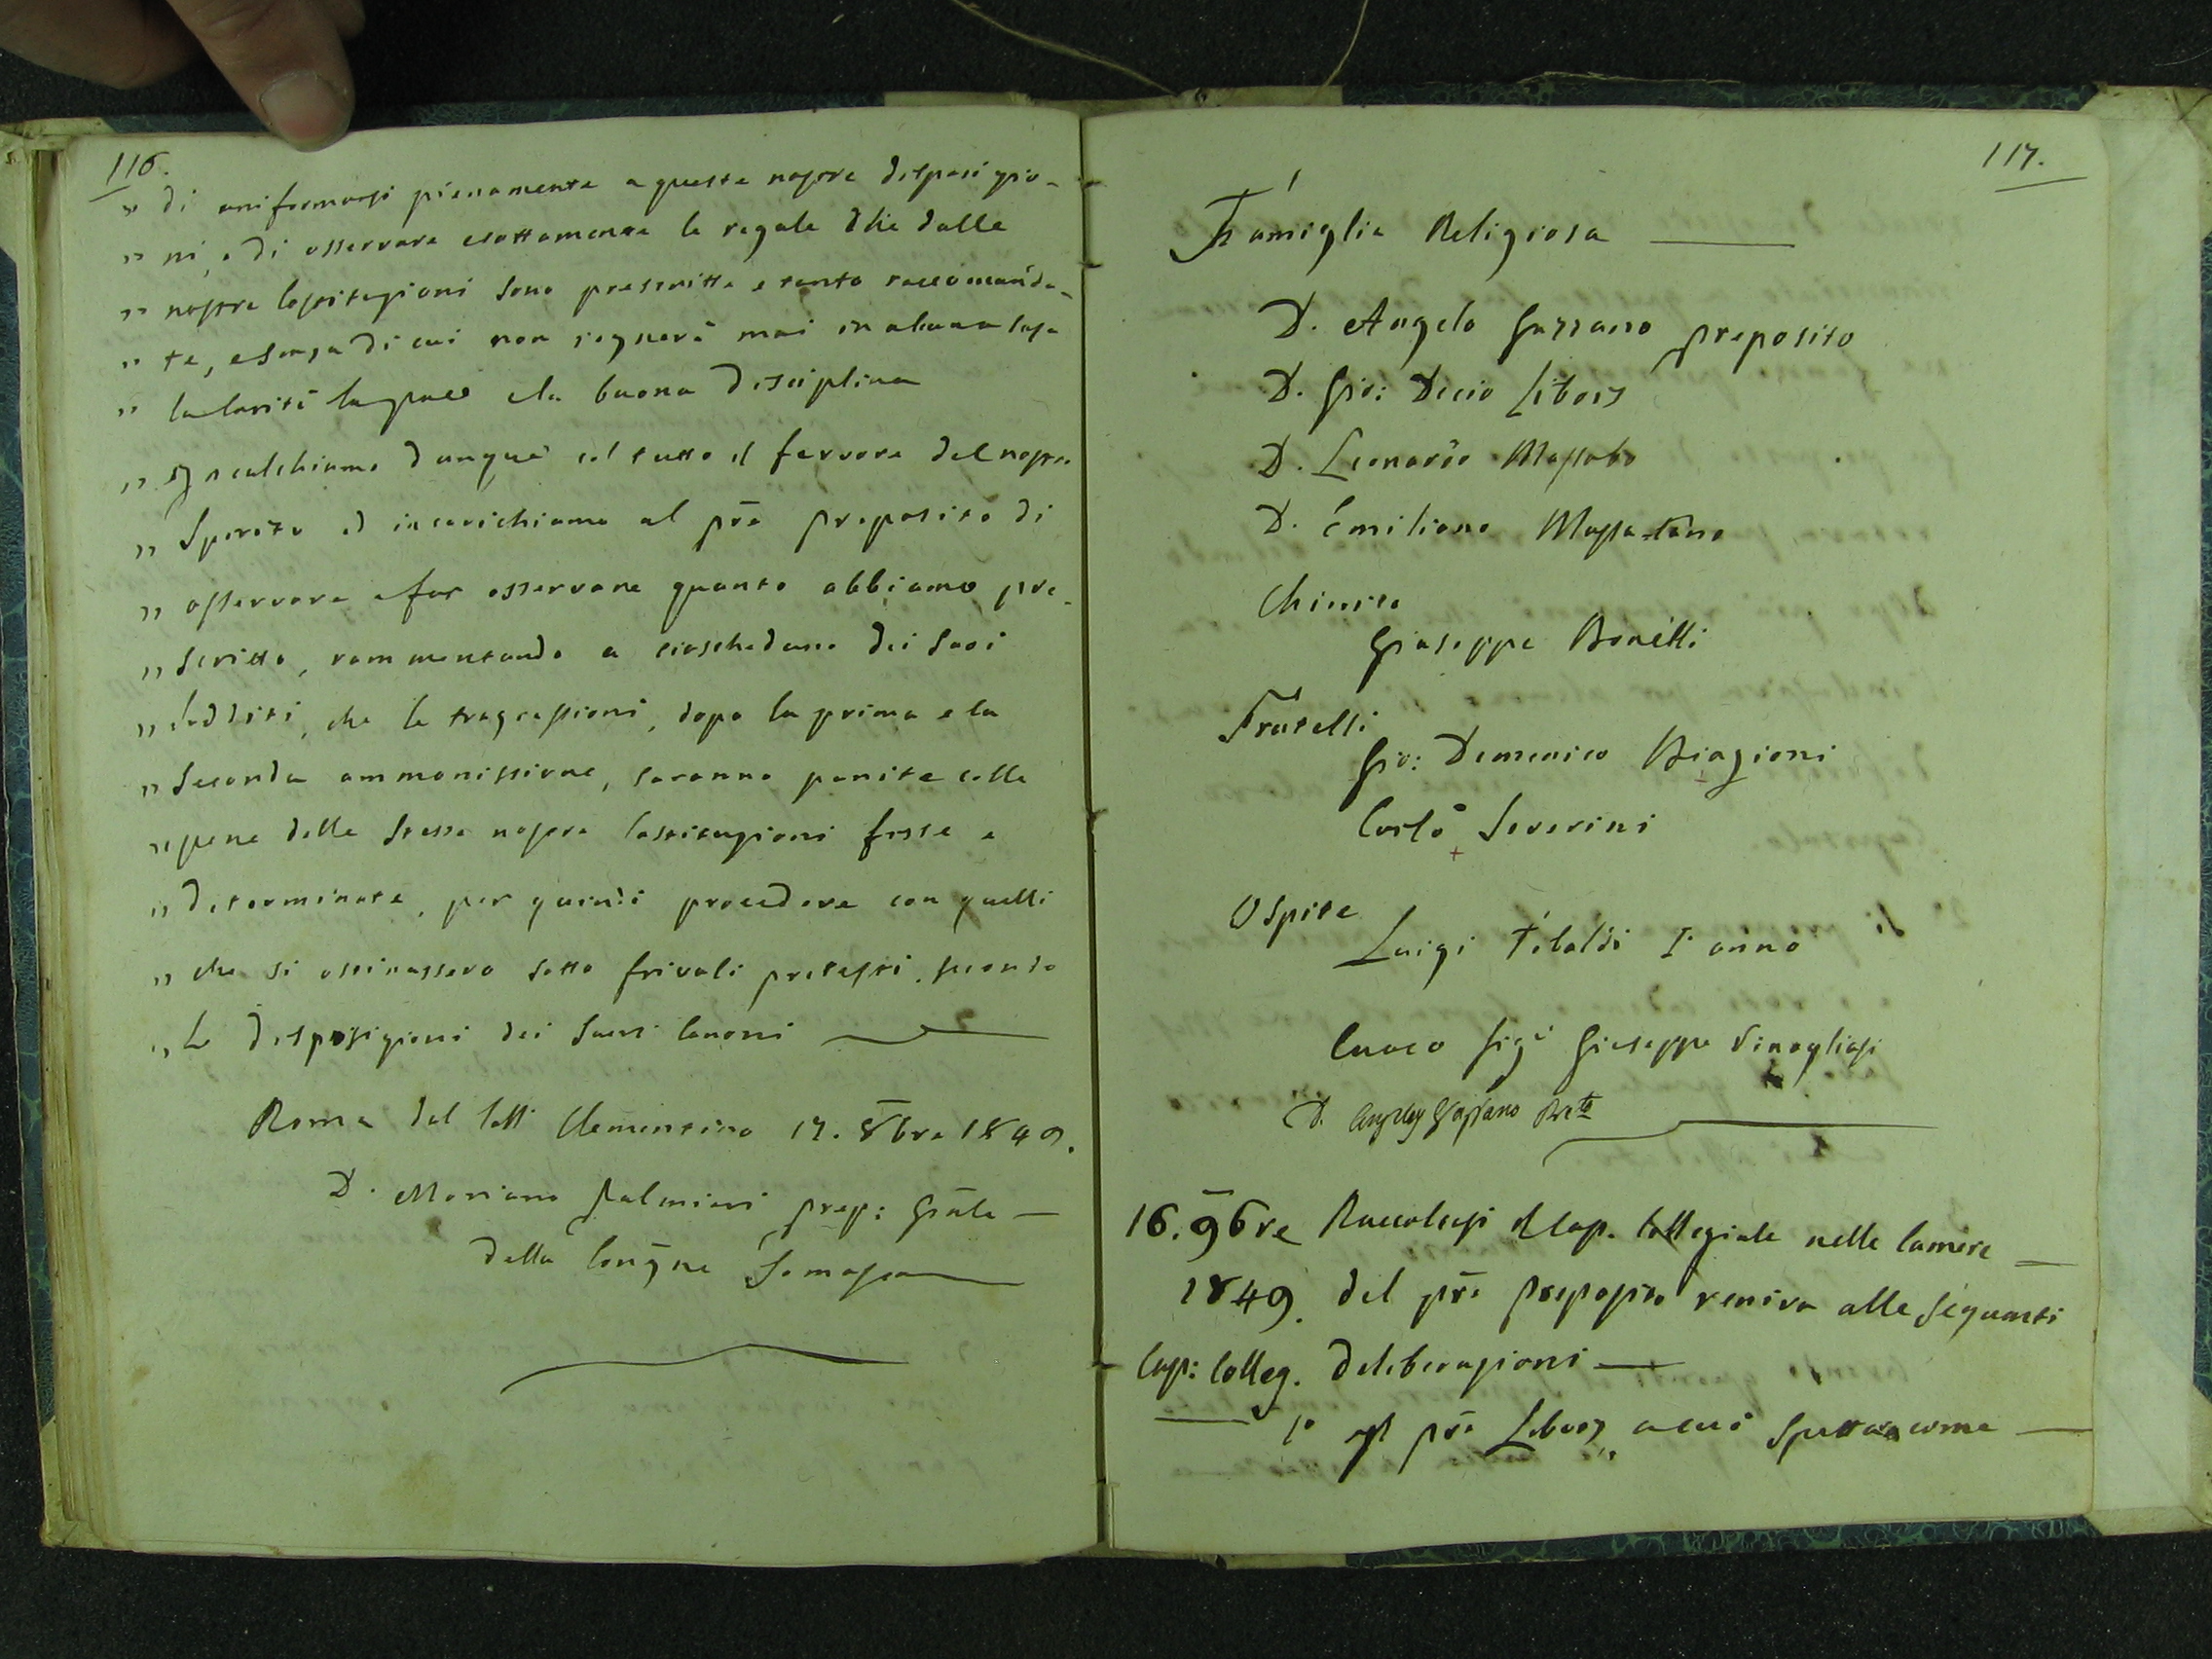 116.
" di uniformarsi pienamente a queste nostre disposizio-
" ni, e di osservare esattamente le regole che dalle
" nostre Costituzioni sono prescritte e tanto raccomanda-
" te, e senza di cui non regnerà mai in alcuna Casa
" la Carità la pace e la buona disciplina
" Inculchiamo dunque col tutto il fervore del nostro
" Spirito ed incarichiamo al pre preposito di
" osservare e far osservare quanto abbiamo pre-
" scritto, rammentando a ciascheduno dei suoi
" sudditi, che le trasgressioni, dopo la prima e la
" seconda ammonissione, saranno punite colle
" pene dalle stesse nostre Costituzioni fisse e
" determinate, per quindi procedere con quelli
" che si ostinassero sotto frivoli pretesti, secondo
" le disposizioni dei Sacri Canoni
Roma dal Coll Clementino 17. 8bre 1849.
D. Mariano Palmieri prep: Gnle
della Congne Somasca
117.
Famiglia Religiosa
D. Angelo Gazzano preposito
D. Gio: Decio Libois
D. Leonardo Massabo
D. Emiliano
Chierico
Giuseppe Bonelli
Fratelli
Gio: Domenico Biagioni
Carlo Severini
Ospite
Luigi Tibaldi I anno
Cuoco Sigr Giuseppe
D. Angelo Gazzano
16. 9bre Raccoltosi il Cap. Collegiale nelle Camere
1849. del pre Preposito veniva alle seguenti
Cap: Colleg. deliberazioni
1° Il pre Libois, a cui come